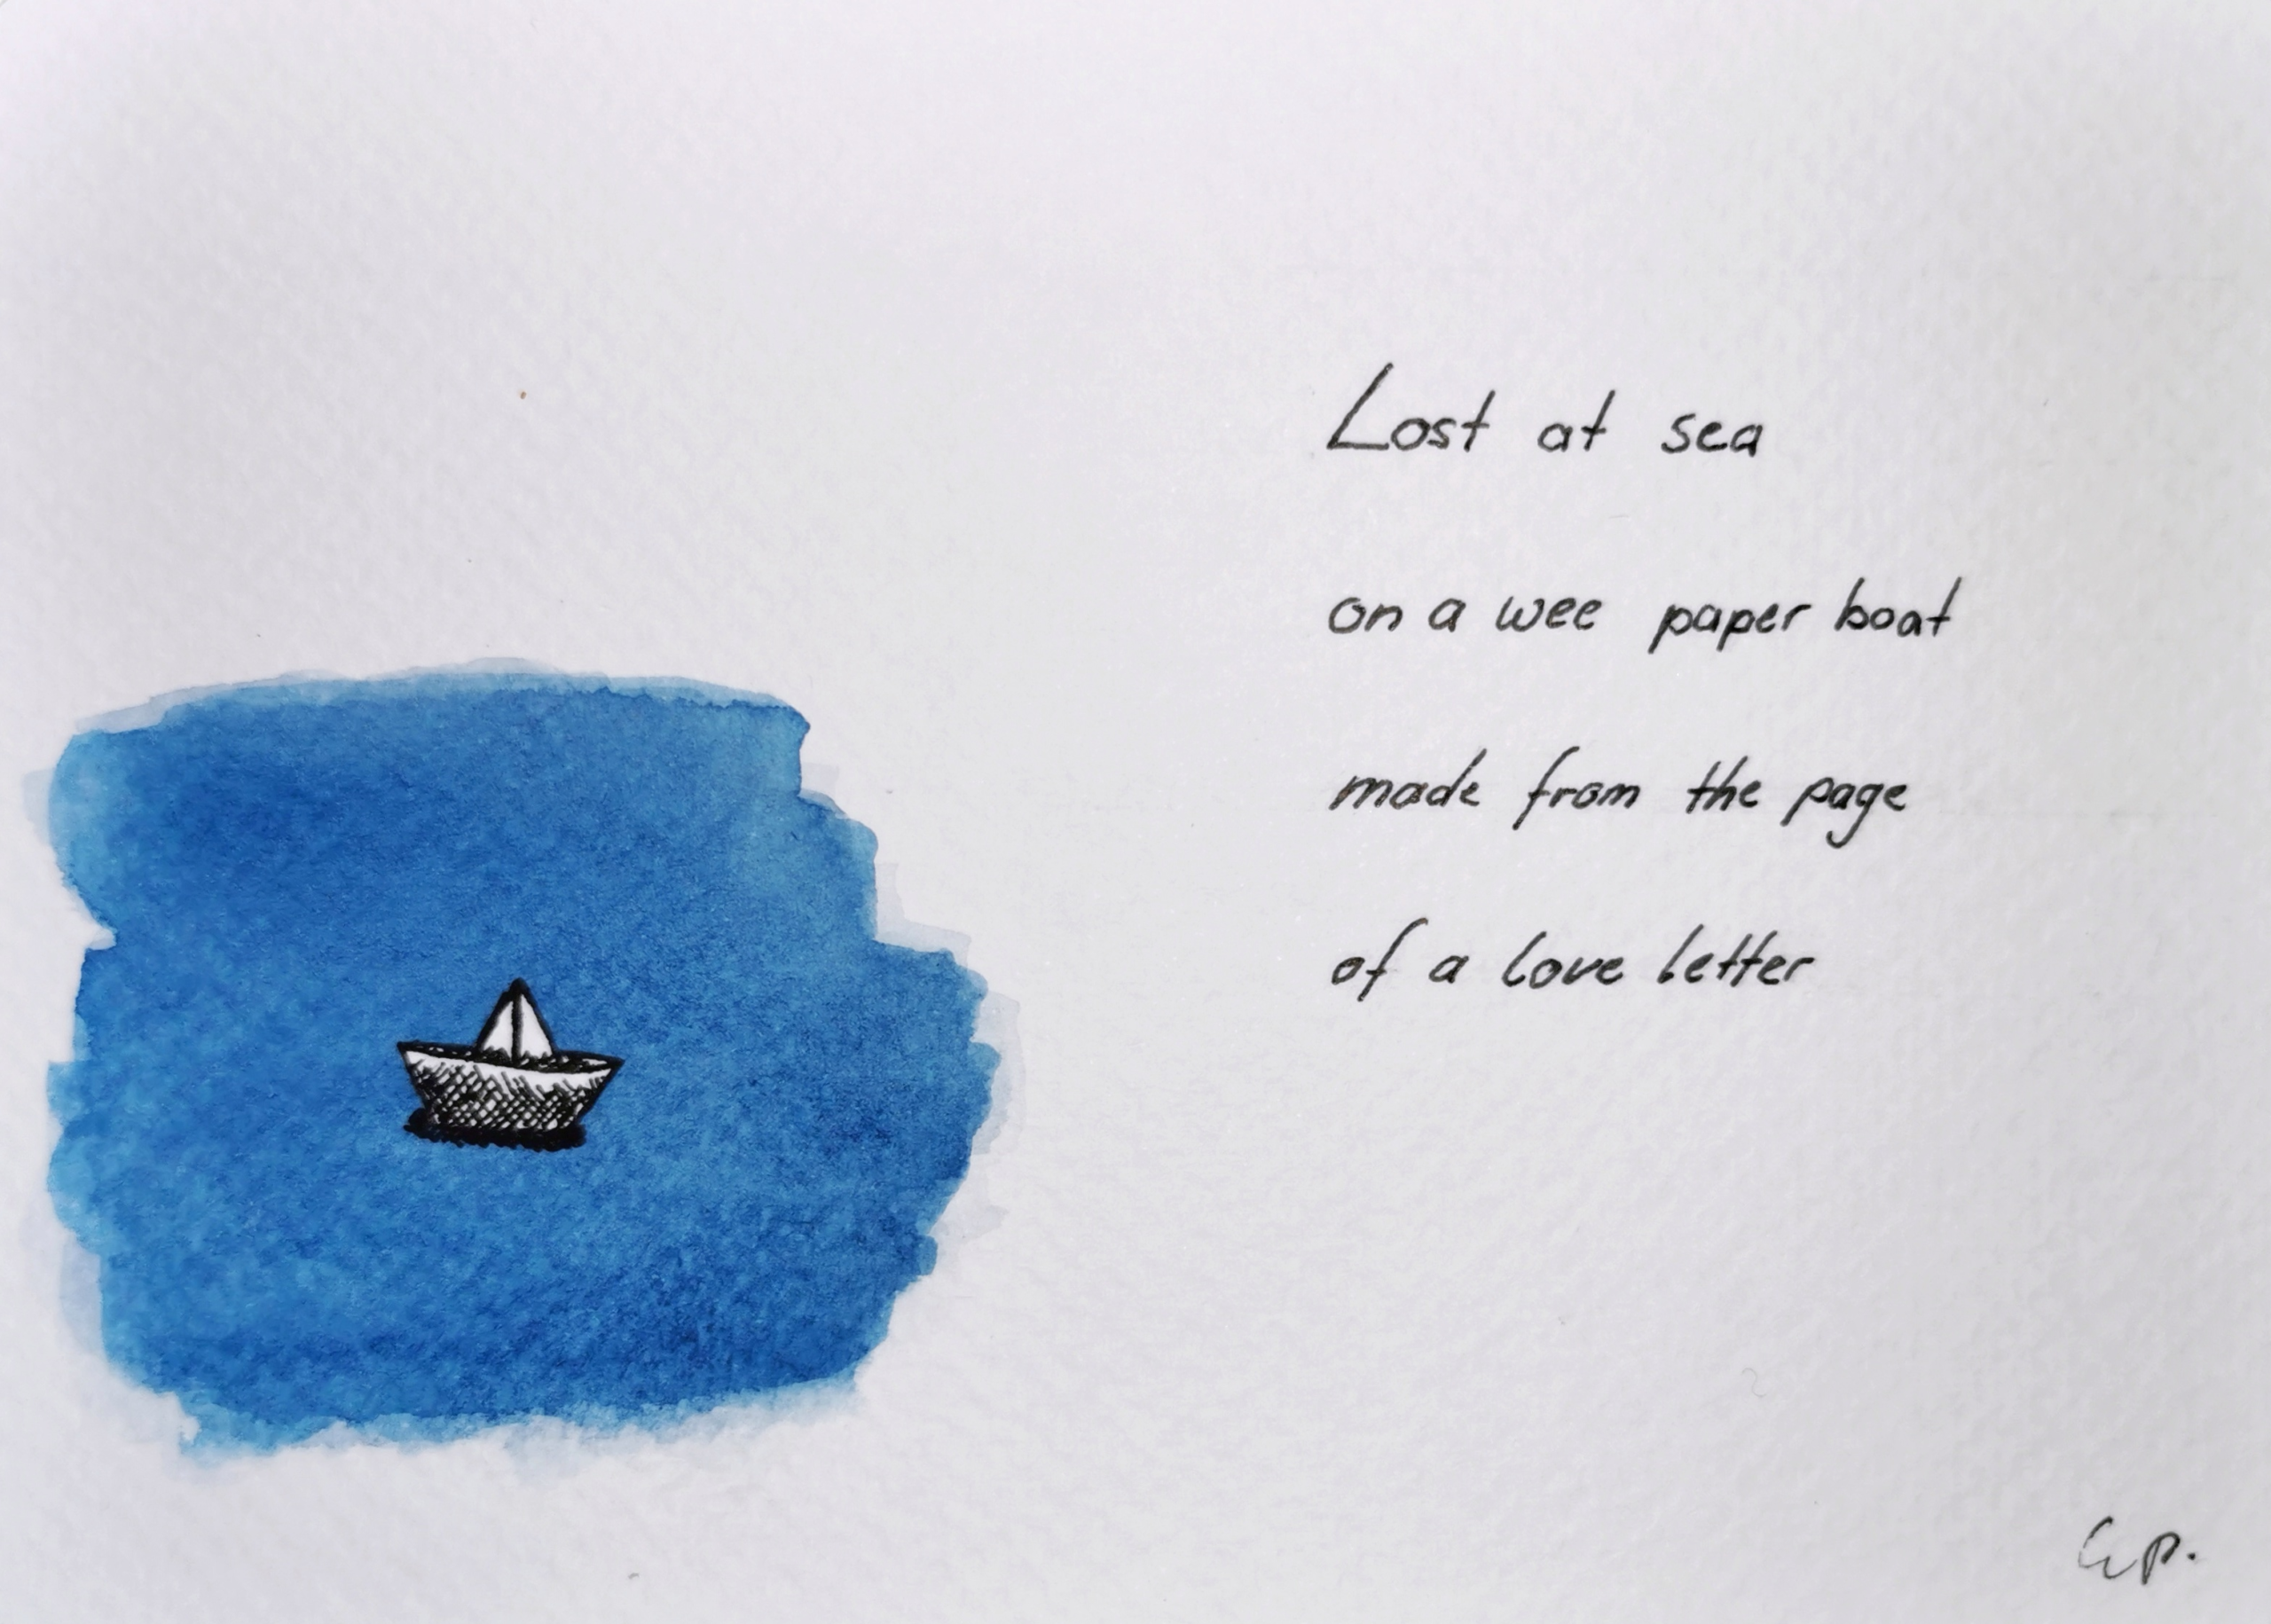 Lost at sea
on a wee paper boat
made from the page
of a love letter